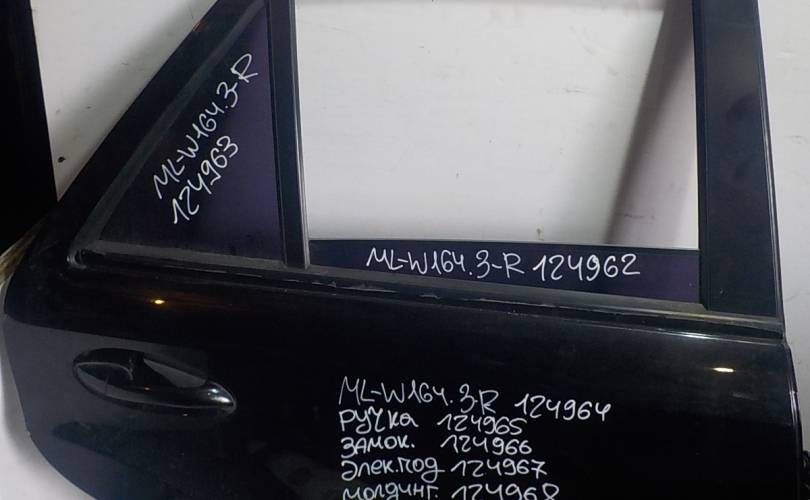 ML-W164.3-R
124963
ML-W164.3-R 124962
ML-W164.3-R 124964
РУЧКА 124965
ЗАМОК. 124966
Элек.под 124967
молдинг. 124968